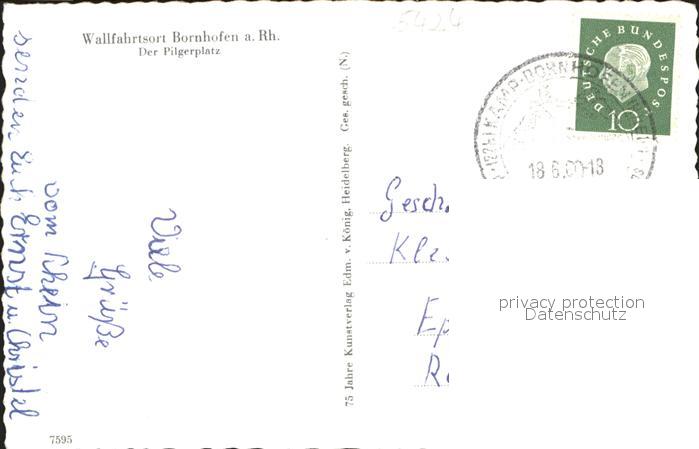 5424
Wallfahrtsort Bornhofen a. Rh.
Der Pilgerplatz
DEUTSCHE BUNDESPOST
10
KAMP-BORNHOFEN
18.6.60-18
Viele
Grüße
vom Rhein
senden Euch Ernst u Christel
75 Jahre Kunstverlag Edm. v. König, Heidelberg. Ges. gesch. (N.)
Gesch.
Kle.
Ep
R
privacy protection
Datenschutz
7595